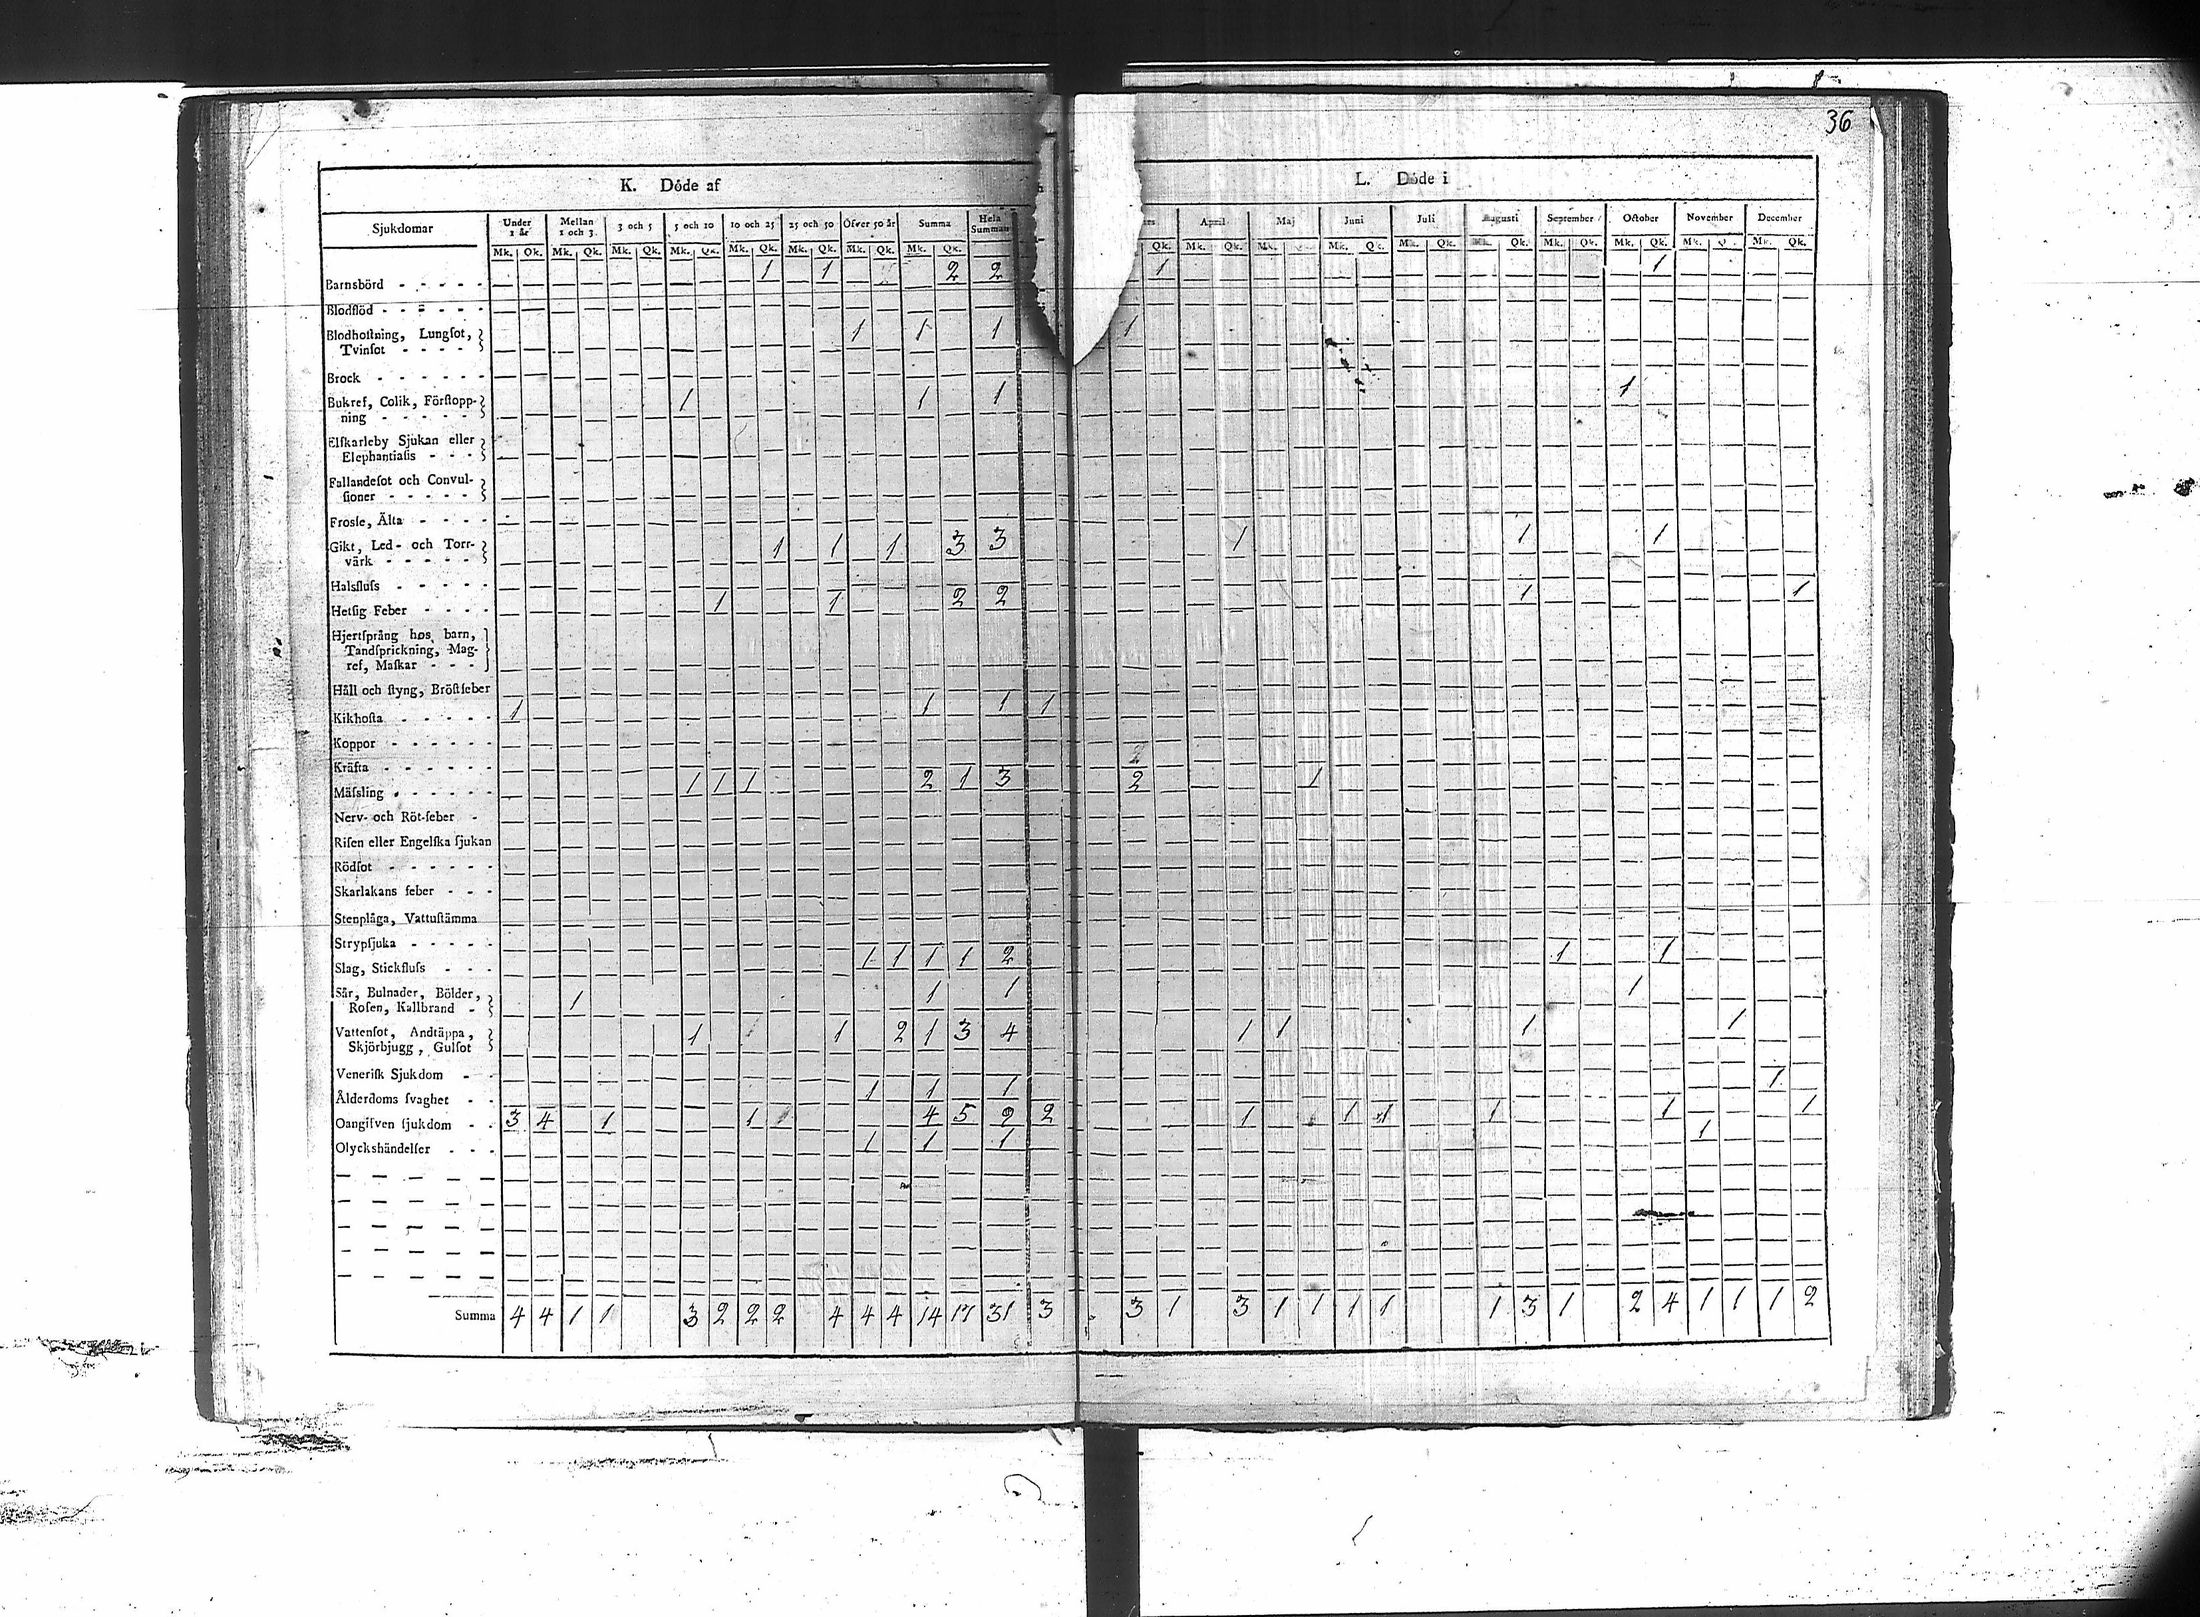 36
K. Döde af
L. Döde i
Sjukdomar Under 1 år Mellan 1 och 3 3 och 5 5 och 10 10 och 25 25 och 50 Öfver 50 år Summa Hela Summan April Maj Juni Juli Augusti September October November December
Mk. Qk. Mk. Qk. Mk. Qk. Mk. Qk. Mk. Qk. Mk. Qk. Mk. Qk. Mk. Qk. Qk. Mk. Qk. Mk. Mk. Qk. Mk. Qk. Mk. Qk. Mk. Qk. Mk. Qk. Mk. Mk. Qk.
Barnsbörd - - - - - 1 1 2 2 1 1
Blodflöd - - - - - -
Blodhoſtning, Lungſot, 1 1 1 1
Tvinſot - - - -
Brock - - - - - -
Bukref, Colik, Förſtopp- 1 1 1 1
ning - - - - -
Elſkarleby Sjukan eller
Elephantiaſis - - -
Fallandeſot och Convul-
ſioner - - - - -
Frosſe, Älta - - - -
Gikt, Led- och Torr- 1 1 1 3 3 1 1 1
värk - - - - -
Halsfluſs - - - - -
Hetſig Feber - - - - 1 1 2 2 1 1
Hjertſprång hos barn,
Tandſprickning, Mag-
ref, Maſkar - - -
Håll och ſtyng, Bröſtfeber
Kikhoſta - - - - - 1 1 1 1
Koppor - - - - - - 2
Kräfta - - - - - -
Mäſsling - - - - - - 1 1 1 2 1 3 2 1
Nerv- och Röt-feber -
Riſen eller Engelſka ſjukan
Rödſot - - - - - -
Skarlakans feber - - -
Stenplåga, Vattuſtämma
Strypſjuka - - - - -
Slag, Stickfluſs - - - 1 1 1 1 2 1 1
Sår, Bulnader, Bölder, 1 1 1 1
Roſen, Kallbrand -
Vattenſot, Andtäppa, 1 1 2 1 3 4 1 1 1 1
Skjörbjugg, Gulſot
Veneriſk Sjukdom - -
Ålderdoms ſvaghet - - 1 1 1 1
Oangifven ſjukdom - - 3 4 1 1 4 5 9 2 1 1 1 1 1 1
Olyckshändelſer - - - 1 1 1 1
Summa 4 4 1 1 3 2 2 2 4 4 4 14 17 31 3 3 1 3 1 1 1 1 1 3 1 2 4 1 1 1 2